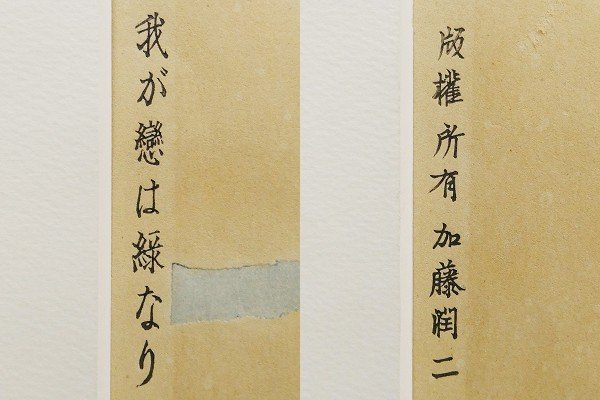 我が戀は緑なり
版權所有 加藤潤二